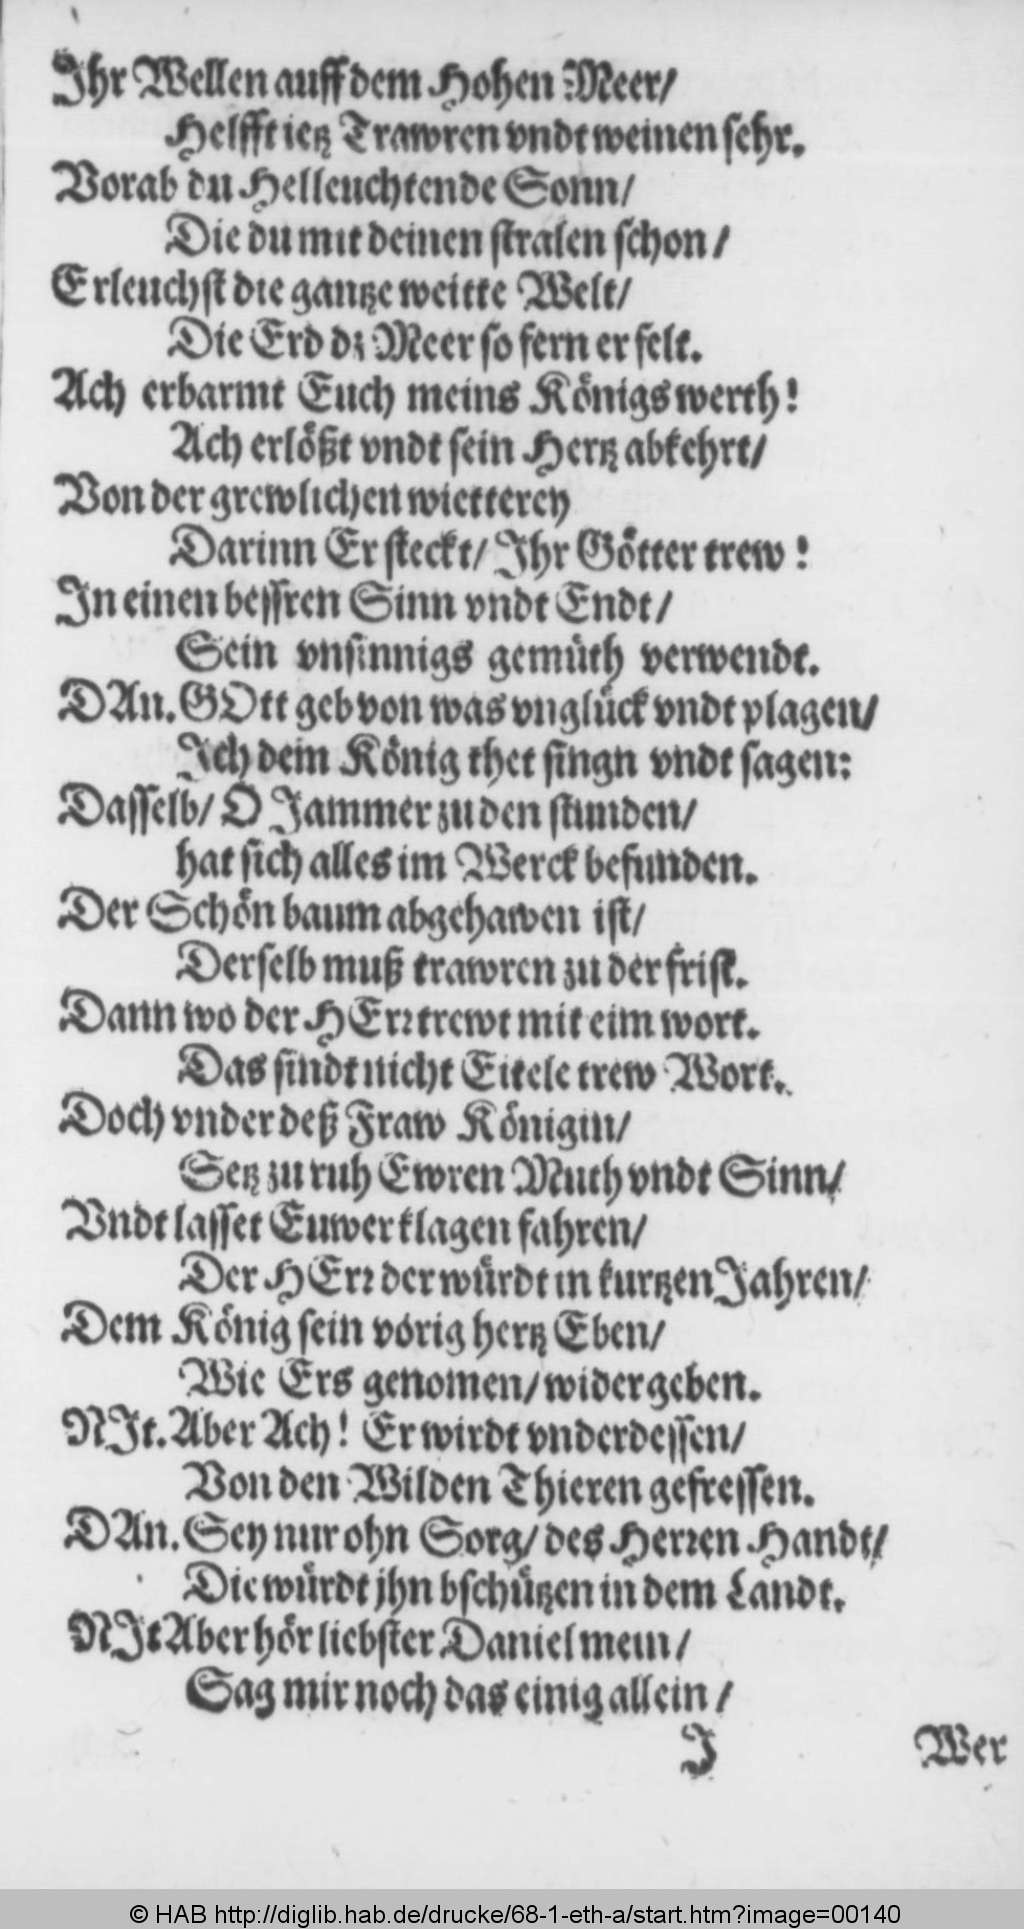 Ihr Wellen auff dem Hohen Meer/
Helfft ietz Trawren vndt weinen sehr.
Vorab du Helleuchtende Sonn/
Die du mit deinen stralen schon/
Erleuchst die gantze weitte Welt/
Die Erd dz Meer so fern er felt.
Ach erbarmt Euch meins Königs werth!
Ach erlößt vndt sein Hertz abkehrt/
Von der grewlichen wietterey
Darinn Er steckt/ Ihr Götter trew!
In einen bessren Sinn vndt Endt/
Sein vnsinnigs gemüth verwendt.
DAn. GOtt geb von was vnglück vndt plagen/
Ich dem König thet singn vndt sagen:
Dasselb/ O Jammer zu den stunden/
hat sich alles im Werck befunden.
Der Schön baum abgehawen ist/
Derselb muß trawren zu der frist.
Dann wo der HErr trewt mit eim wort.
Das sindt nicht Eitele trew Wort.
Doch vnder deß Fraw Königin/
Setz zu ruh Ewren Muth vndt Sinn/
Vndt lasset Euwer klagen fahren/
Der HErr der würdt in kurtzen Jahren/
Dem König sein vorig hertz Eben/
Wie Ers genomen/ wider geben.
NIt. Aber Ach! Er wirdt vnderdessen/
Von den Wilden Thieren gefressen.
DAn. Sey nur ohn Sorg/ des Herren Handt/
Die würdt jhn bschützen in dem Landt.
NIt Aber hör liebster Daniel mein/
Sag mir noch das einig allein/
J Wer
© HAB http://diglib.hab.de/drucke/68-1-eth-a/start.htm?image=00140